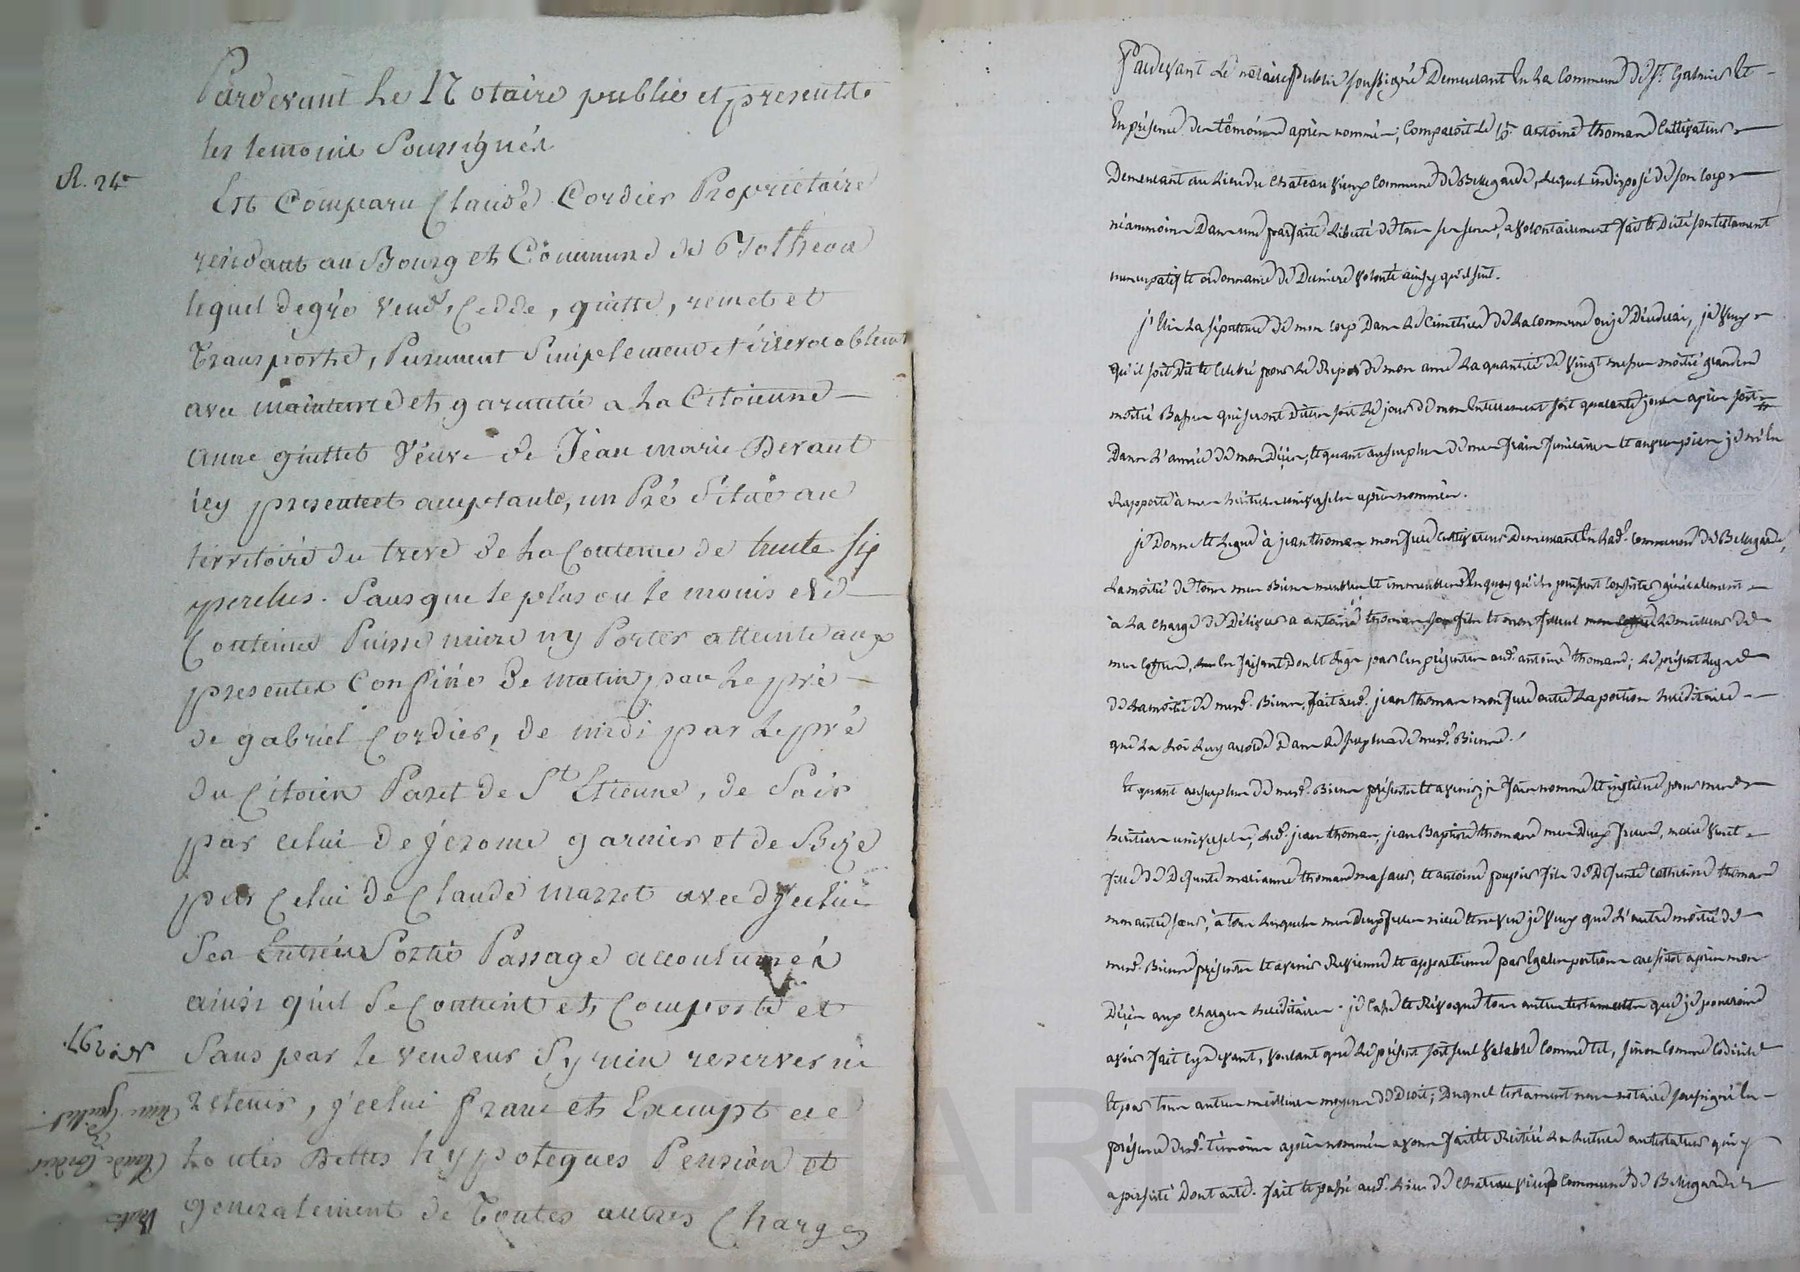 Pardevant Le Notaire public et presentte
les temoins Soussignés
R. 24
Est Comparu Claude Cordier Proprietaire
résidant au Bourg et Commune de Rotheon
lequel de gré vend, Cedde, quitte, remet et
Transporte, Purement Simplement et irrevocablement
avec maintenue et garantie a La Citoienne
anne guittet Veuve de Jean marie Devaut
icy presente et acceptante, un Pré Situé au
territoire du treve de La Contenue de trente six
perches. Sans que le plus ou le moins de
Contenue Puisse nuire ny Porter atteinte aux
presentes Confiné de matin par Le pré
de gabriel Cordier, de midi par Le pré
du Citoien Paret de St Etienne, de Soir
par celui de Jerome garnier et de Bize
par Celui de Claude mazzet avec d'jcelui
Ses Entrées Sortie Passage accoutumés
ainsi qu'il Se Contient et Comporte et
Sans par le vendeur S'y rien reserver ni
retenir, j'celui franc et Exempt de
toutes Dettes hypoteques Pension et
generalement de Toutes autres Charges
No. 297.
anne Guittet
Claude Cordier
Vente
Pardevant Le notaire Public soussigné Demeurant En La Commune de St. Galmier Et
En présence des témoins après nommés, Comparoit le Cn. antoine thomas Cultivateur
Demeurant au Lieu du Chateau vieux Commune de Bellegarde, Lequel indisposé de son Corps
néammoins Dans une parfaite Liberté de tous ses sens, a volontairement fait et Dicté son testament
nuncupatif et ordonnance de Derniere volonté ainsy qu'il suit.
j'Elis La sépulture de mon Corps Dans Le Cimetière de La Commune ou je Décéderai, je veux
qu'il soit Dit et Célébré pour Le Repos de mon ame La quantité de vingt messes moitié grandes
moitié Basses qui seront Dittes soit Le jour de mon Enterrement soit quarante jours après soit
Dans L'année de mon Décès, Et quant au surplus de mes frais funéraires et œuvres pies je m'en
Rapporte à mes héritiers universels après nommés.
je Donne et Legue à jean thomas mon frere Cultivateur Demeurant En Lad. Commune de Bellegarde,
La moitié de tous mes Biens meubles et immeubles En quoy qu'ils puissent Consister généralement
à La Charge de Délivrer a antoine thomas son fils et mon filleul Le meilleur de
mes Coffres, Luy En faisant Don et Legs par Ces présentes aud. antoine thomas; Le présent Legs
de La moitié de mesd. Biens, fait aud. jean thomas mon frere outre La portion héréditaire
que La Loi Luy accorde Dans Le surplus de mesd. Biens.
Et quant au surplus de mesd. Biens présents et avenir, je fais nomme et institue pour mes
héritiers universels, Led. jean thomas, jean Baptiste thomas mes Deux freres, marie
fille de Défunte marianne thomas ma sœur, et antoine poupier fils de Défunte Catherine thomas
mon autre sœur, à tous Lesquels mes Deux freres niece et neveu je veux que L'autre moitié de
mesd. Biens présents et avenir Revienne et appartienne par égales portions aussitot après mon
Décès aux Charges héréditaires. je Casse et Révoque tous autres testaments que je pourrois
avoir fait cy devant, voulant que Le présent soit seul valable Comme tel, sinon Comme Codicile
Et par tous autres meilleurs moyens de Droit; Duquel testament nous notaire soussigné En
présence desd. témoins après nommés avons fait et Réitéré La Lecture au testateur qui y
a persisté Dont acte. fait et passé aud. Lieu de Chateau vieux Commune de Bellegarde